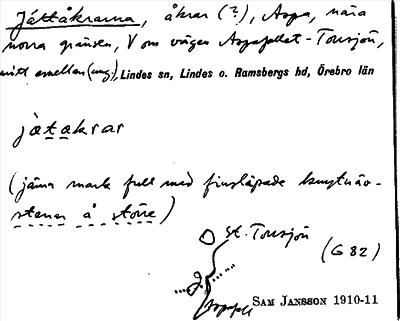 Jättåkrarna, åkrar (?), Aspa, nära
norra gränsen, V om vägen Aspafallet - Torsjön,
mitt emellan (ung.), Lindes sn, Lindes o. Ramsbergs hd, Örebro län
jätakrar
(jämn mark full med finslipade
stenar å större)
St. Torsjön
(G 82)
SAM JANSSON 1910-11